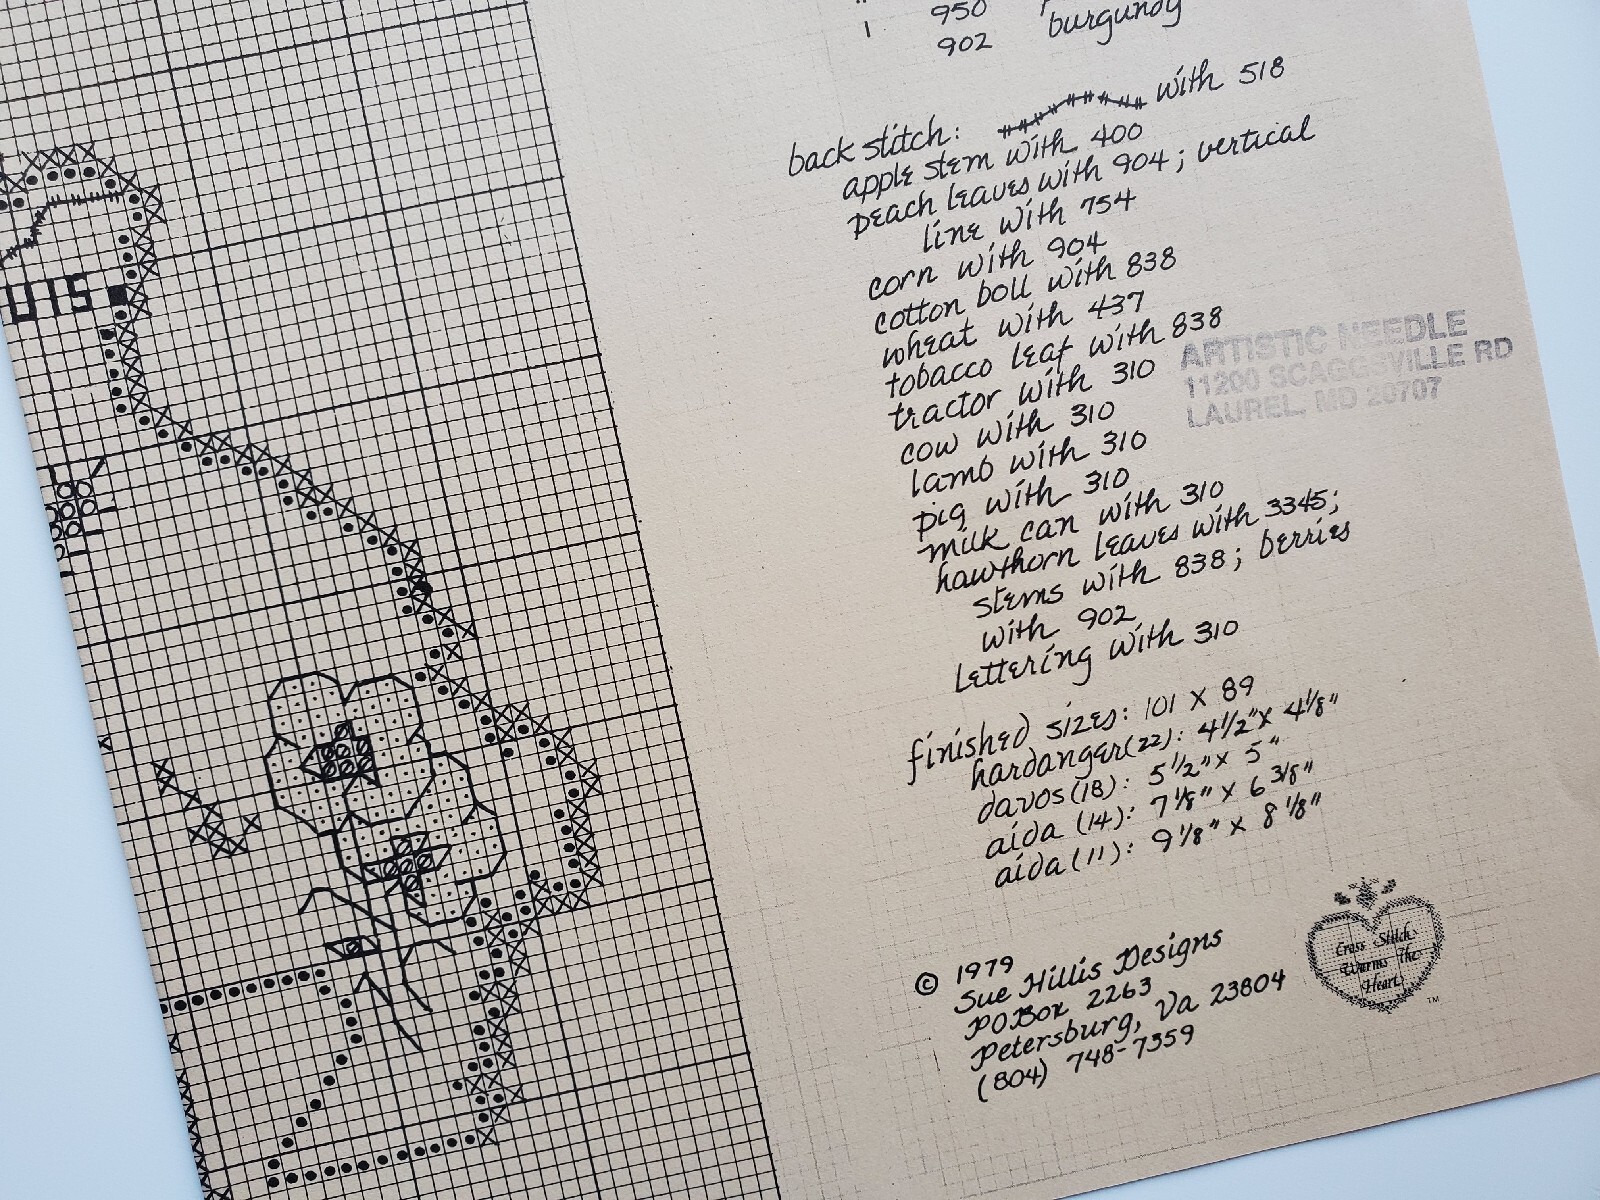 950
902 burgundy
back stitch: with 518
apple stem with 400
peach leaves with 904; vertical
line with 754
corn with 904
cotton boll with 838
wheat with 437
tobacco leaf with 838
tractor with 310
cow with 310
lamb with 310
pig with 310
milk can with 310
hawthorn leaves with 3345;
stems with 838; berries
with 902
lettering with 310
ARTISTIC NEEDLE
11200 SCAGGSVILLE RD
LAUREL, MD 20707
finished sizes: 101 X 89
hardanger(22): 4 1/2" X 4 1/8"
davos (18): 5 1/2" X 5"
aida (14): 7 1/8" X 6 3/8"
aida (11): 9 1/8" X 8 1/8"
© 1979
Sue Hillis Designs
PO Box 2263
Petersburg, Va 23804
(804) 748-7359
Cross Stitch
Warms The
Heart
TM
UIS